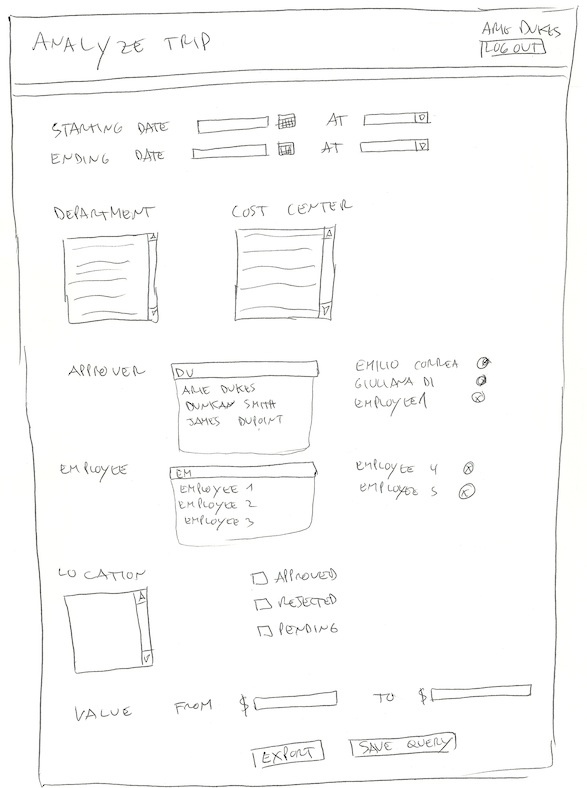 ANALYZE TRIP
ARIE DUKES
LOG OUT
STARTING DATE AT
ENDING DATE AT
DEPARTMENT COST CENTER
APPROVER DU
ARIE DUKES
DUNCAN SMITH
JAMES DUPOINT
EMILIO CORREA
GIULIANA DI
EMPLOYEE 1
EMPLOYEE EM
EMPLOYEE 1
EMPLOYEE 2
EMPLOYEE 3
EMPLOYEE 4
EMPLOYEE 5
LOCATION
APPROVED
REJECTED
PENDING
VALUE FROM $ TO $
EXPORT SAVE QUERY